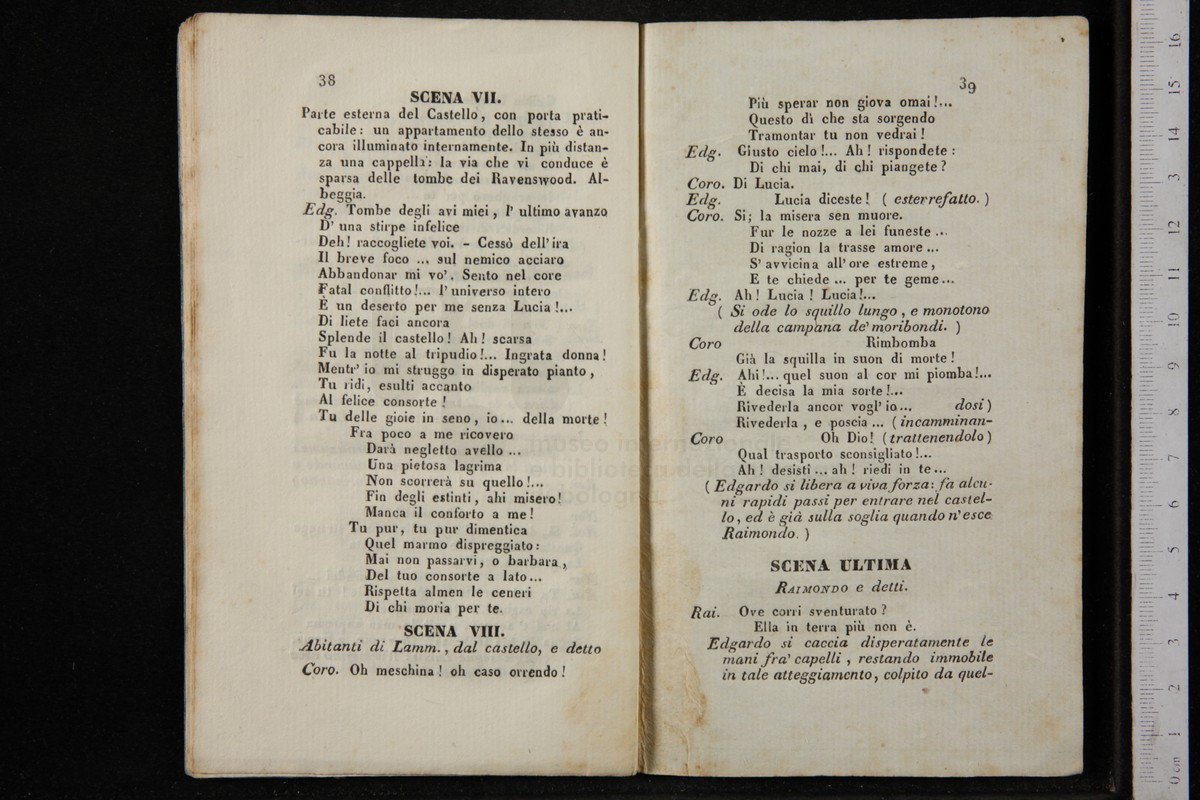 38
SCENA VII.
Parte esterna del Castello, con porta prati-
cabile: un appartamento dello stesso è an-
cora illuminato internamente. In più distan-
za una cappella: la via che vi conduce è
sparsa delle tombe dei Ravenswood. Al-
beggia.
Edg. Tombe degli avi miei, l' ultimo avanzo
D' una stirpe infelice
Deh! raccogliete voi. - Cessò dell' ira
Il breve foco ... sul nemico acciaro
Abbandonar mi vo'. Sento nel core
Fatal conflitto!... l' universo intero
È un deserto per me senza Lucia!...
Di liete faci ancora
Splende il castello! Ah! scarsa
Fu la notte al tripudio!... Ingrata donna!
Mentr' io mi struggo in disperato pianto,
Tu ridi, esulti accanto
Al felice consorte!
Tu delle gioie in seno, io... della morte!
Fra poco a me ricovero
Darà negletto avello ...
Una pietosa lagrima
Non scorrerà su quello!...
Fin degli estinti, ahi misero!
Manca il conforto a me!
Tu pur, tu pur dimentica
Quel marmo dispreggiato:
Mai non passarvi, o barbara,
Del tuo consorte a lato...
Rispetta almen le ceneri
Di chi moria per te.
SCENA VIII.
Abitanti di Lamm., dal castello, e detto
Coro. Oh meschina! oh caso orrendo!
39
Più sperar non giova omai!...
Questo dì che sta sorgendo
Tramontar tu non vedrai!
Edg. Giusto cielo!... Ah! rispondete:
Di chi mai, di chi piangete?
Coro. Di Lucia.
Edg. Lucia diceste! ( esterrefatto. )
Coro. Si; la misera sen muore.
Fur le nozze a lei funeste ...
Di ragion la trasse amore ...
S' avvicina all' ore estreme,
E te chiede ... per te geme...
Edg. Ah! Lucia! Lucia!...
( Si ode lo squillo lungo, e monotono
della campana de' moribondi. )
Coro Rimbomba
Già la squilla in suon di morte!
Edg. Ahi!... quel suon al cor mi piomba!...
È decisa la mia sorte!...
Rivederla ancor vogl' io... dosi)
Rivederla, e poscia ... (incamminan-
Coro Oh Dio! (trattenendolo)
Qual trasporto sconsigliato!...
Ah! desisti ... ah! riedi in te...
( Edgardo si libera a viva forza: fa alcu-
ni rapidi passi per entrare nel castel-
lo, ed è già sulla soglia quando n' esce
Raimondo. )
SCENA ULTIMA
RAIMONDO e detti.
Rai. Ove corri sventurato?
Ella in terra più non è.
Edgardo si caccia disperatamente le
mani fra' capelli, restando immobile
in tale atteggiamento, colpito da quel-
museo internazionale
e biblioteca della
bologna
0 cm 1 2 3 4 5 6 7 8 9 10 11 12 13 14 15 16